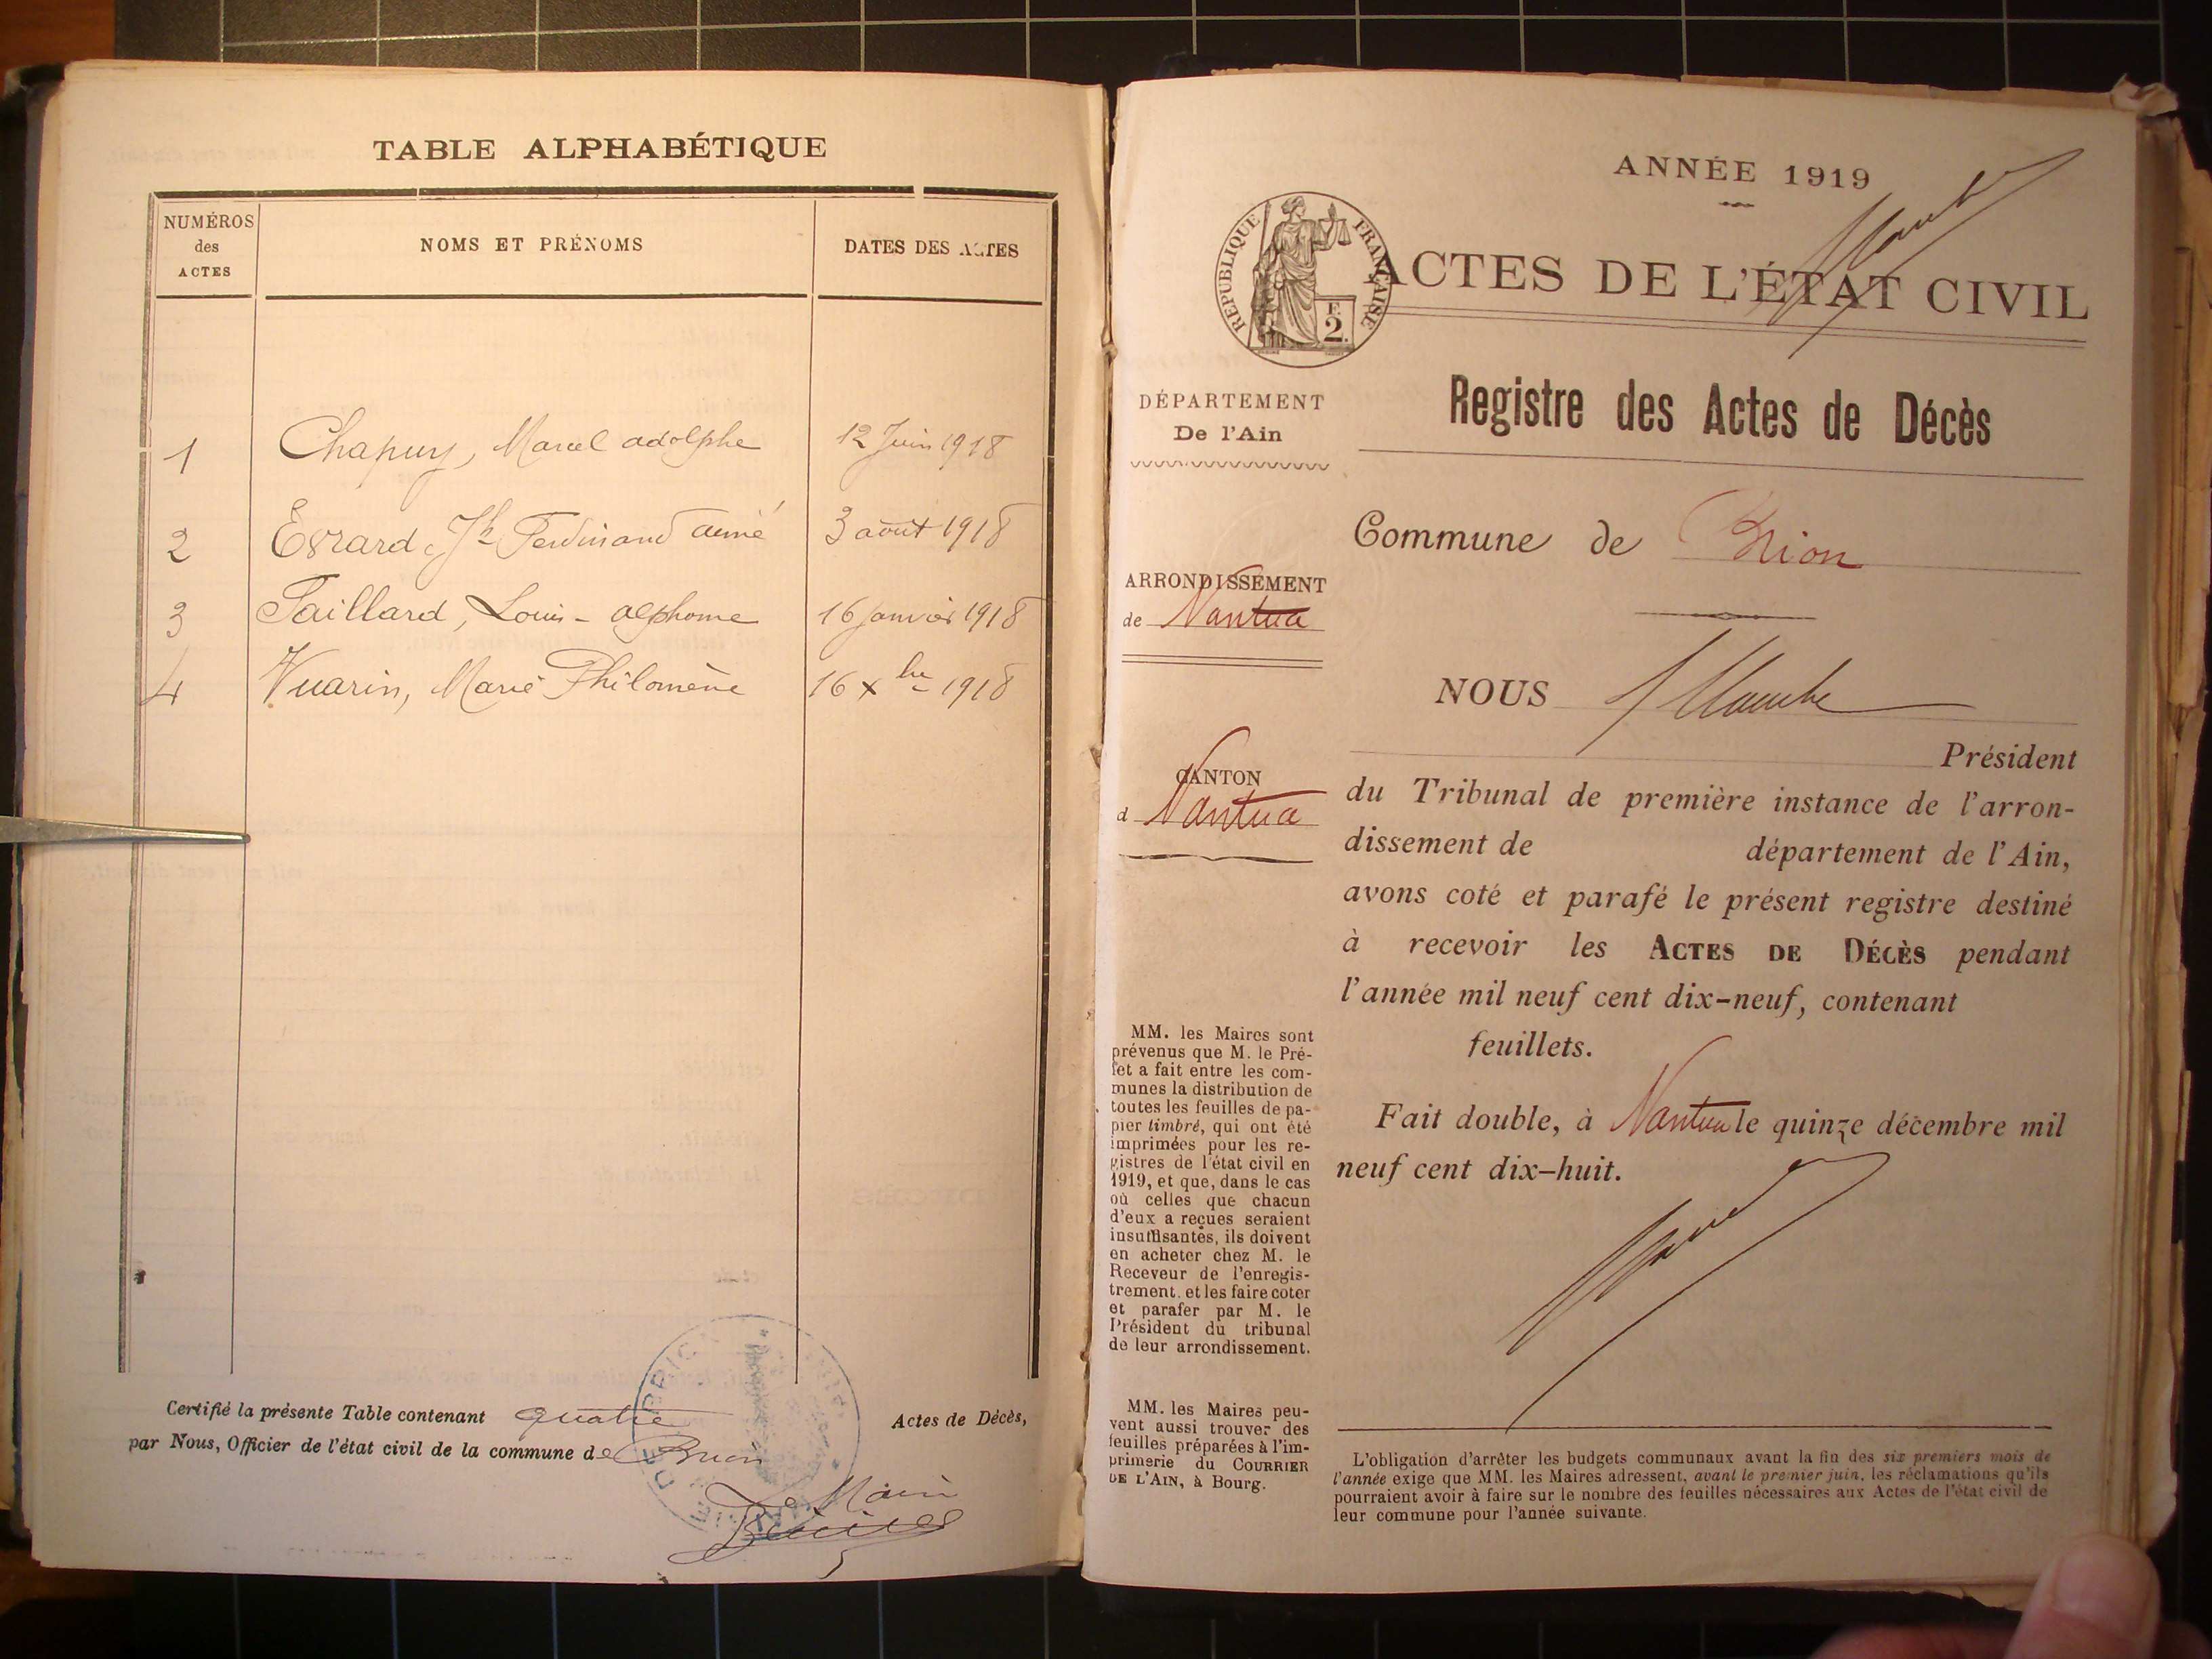 TABLE ALPHABÉTIQUE
NUMÉROS
des
ACTES
NOMS ET PRÉNOMS
DATES DES ACTES
1 Chapuy, Marcel adolphe 12 Juin 1918
2 Evrard, Jh Ferdinand aimé 3 août 1918
3 Taillard, Louis - alphonse 16 janvier 1918
4 Vuarin, Marie Philomène 16 Xbre 1918
Certifié la présente Table contenant quatre Actes de Décès,
par Nous, Officier de l'état civil de la commune de Brion
Le Maire
ANNÉE 1919
RÉPUBLIQUE FRANÇAISE
F.
2.
ACTES DE L'ÉTAT CIVIL
DÉPARTEMENT
De l'Ain
Registre des Actes de Décès
Commune de Brion
ARRONDISSEMENT
de Nantua
NOUS
Président
CANTON
d Nantua
du Tribunal de première instance de l'arron-
dissement de département de l'Ain,
avons coté et parafé le présent registre destiné
à recevoir les ACTES DE DÉCÈS pendant
l'année mil neuf cent dix-neuf, contenant
feuillets.
Fait double, à Nantua le quinze décembre mil
neuf cent dix-huit.
MM. les Maires sont
prévenus que M. le Pré-
fet a fait entre les com-
munes la distribution de
toutes les feuilles de pa-
pier timbré, qui ont été
imprimées pour les re-
gistres de l'état civil en
1919, et que, dans le cas
où celles que chacun
d'eux a reçues seraient
insuffisantes, ils doivent
en acheter chez M. le
Receveur de l'enregis-
trement, et les faire coter
et parafer par M. le
Président du tribunal
de leur arrondissement.
MM. les Maires peu-
vent aussi trouver des
feuilles préparées à l'im-
primerie du COURRIER
DE L'AIN, à Bourg.
L'obligation d'arrêter les budgets communaux avant la fin des six premiers mois de
l'année exige que MM. les Maires adressent, avant le premier juin, les réclamations qu'ils
pourraient avoir à faire sur le nombre des feuilles nécessaires aux Actes de l'état civil de
leur commune pour l'année suivante.